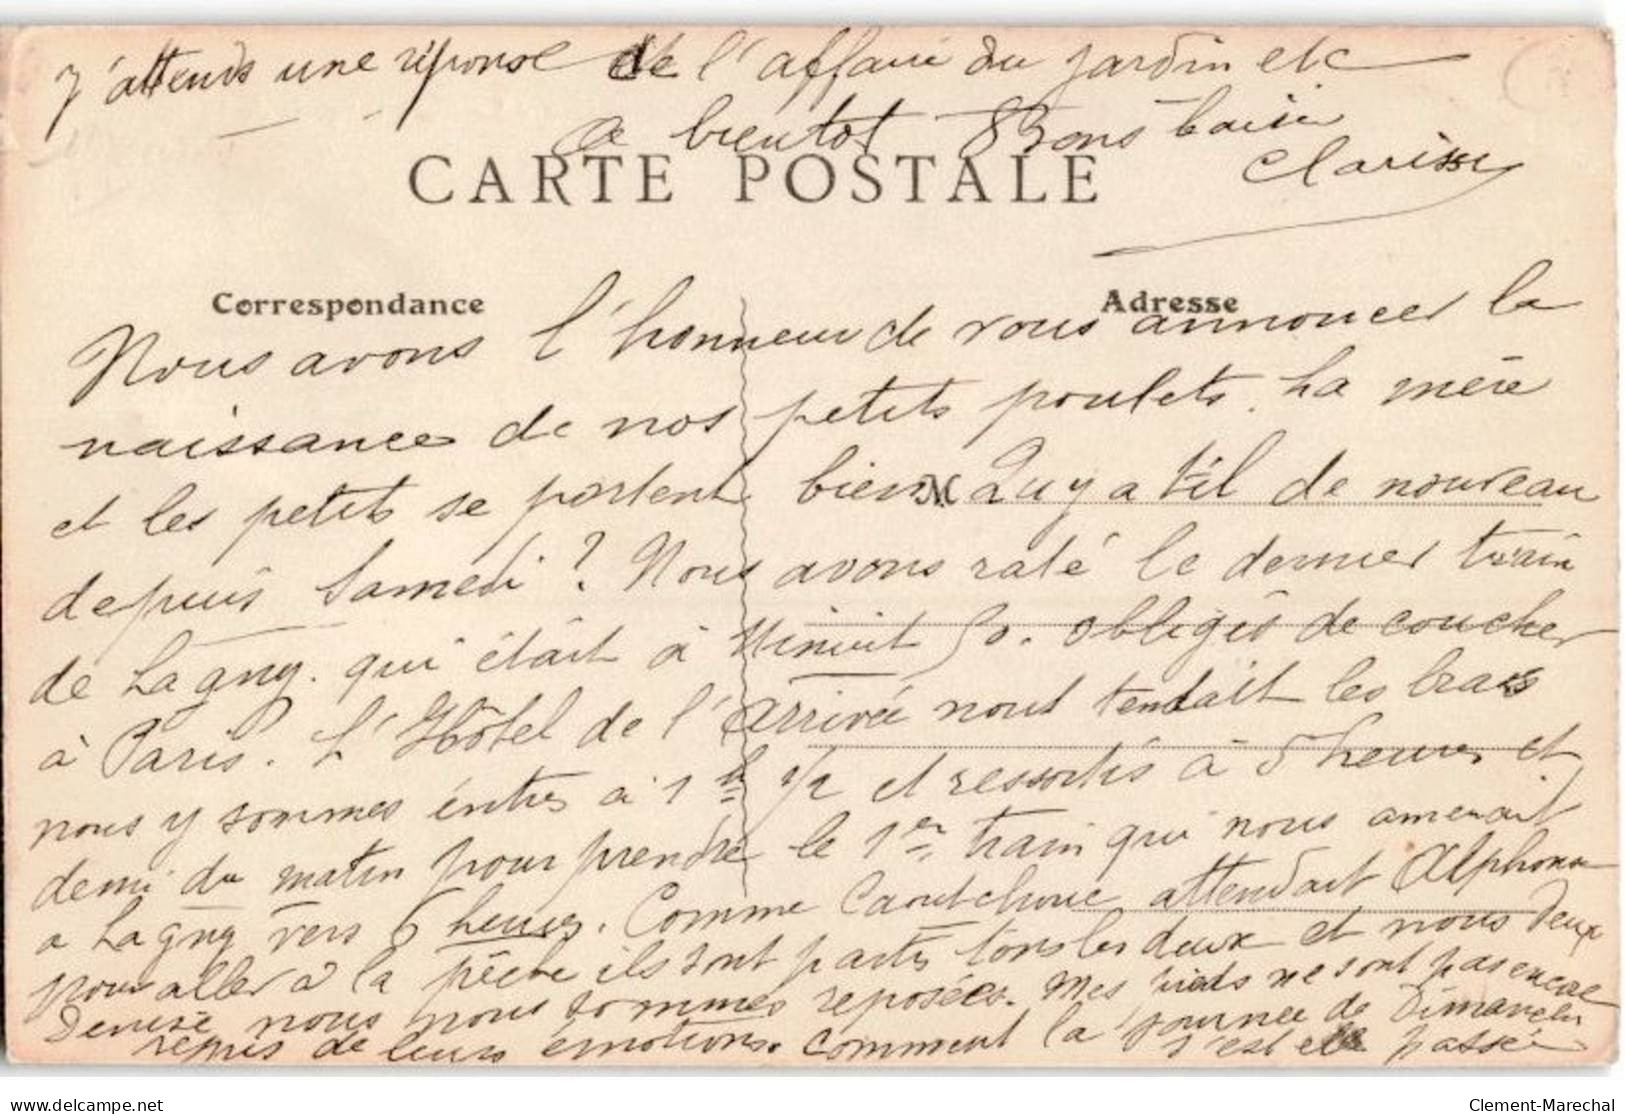 J'attends une réponse de l'affaire du jardin etc
a bientot Bons baisers
Clarisse
CARTE POSTALE
Correspondance
Adresse
Nous avons l'honneur de vous annoncer la
naissance de nos petits poulets. La mère
et les petits se portent bien Qu'y a t'il de nouveau
depuis Samedi ? Nous avons raté le dernier train
de Lagny. qui était à Minuit 50. obligés de coucher
à Paris. L'Hôtel de l'Arrivée nous tendait les bras
nous y sommes entrés à 1h 1/2 et ressortis à 5 heures et
demi du matin pour prendre le 1er train qui nous amenait
a Lagny vers 6 heures. Comme Caoutchouc attendait Alphonse
pour aller à la pêche ils sont partis tous les deux et nous deux
Denise nous nous sommes reposées. Mes pieds ne sont pas encore
repris de leurs émotions. Comment la journée de Dimanche
s'est elle passée
Clement-Marechal